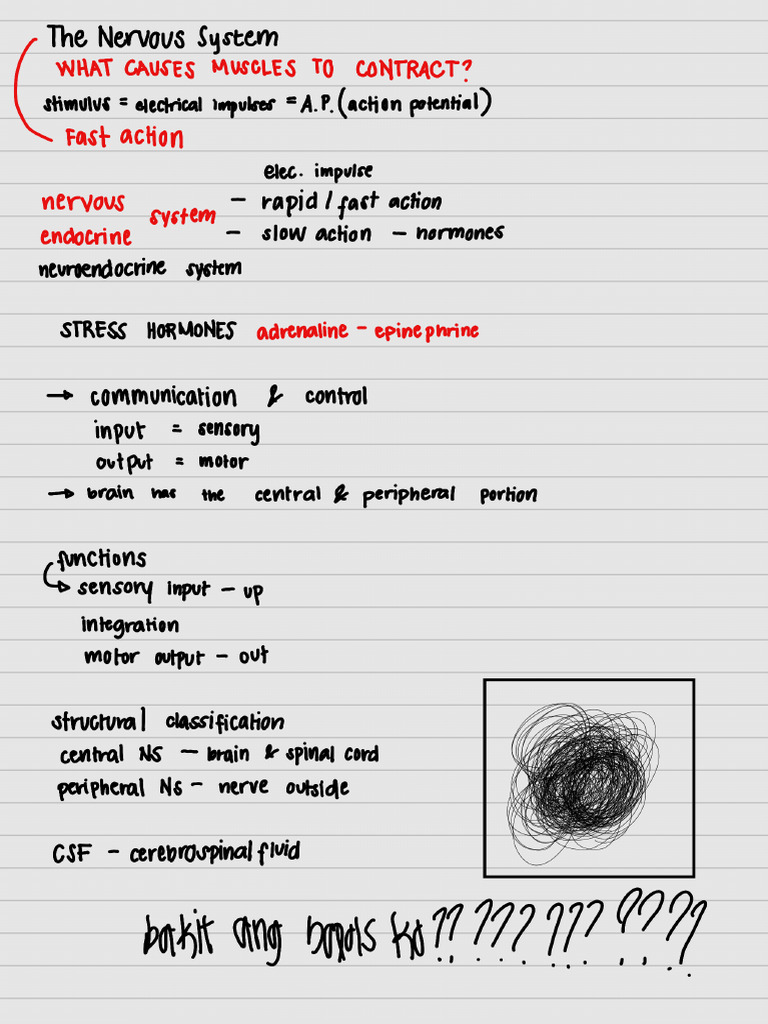 The Nervous System
WHAT CAUSES MUSCLES TO CONTRACT?
stimulus = electrical impulses = A.P. (action potential)
Fast action
elec. impulse
nervous system - rapid / fast action
endocrine - slow action - hormones
neuroendocrine system
STRESS HORMONES adrenaline - epinephrine
→ communication & control
input = sensory
output = motor
→ brain has the central & peripheral portion
functions
↳ sensory input - up
integration
motor output - out
structural classification
central NS - brain & spinal cord
peripheral NS - nerve outside
CSF - cerebrospinal fluid
bakit ang ko?? ??? ??? ????